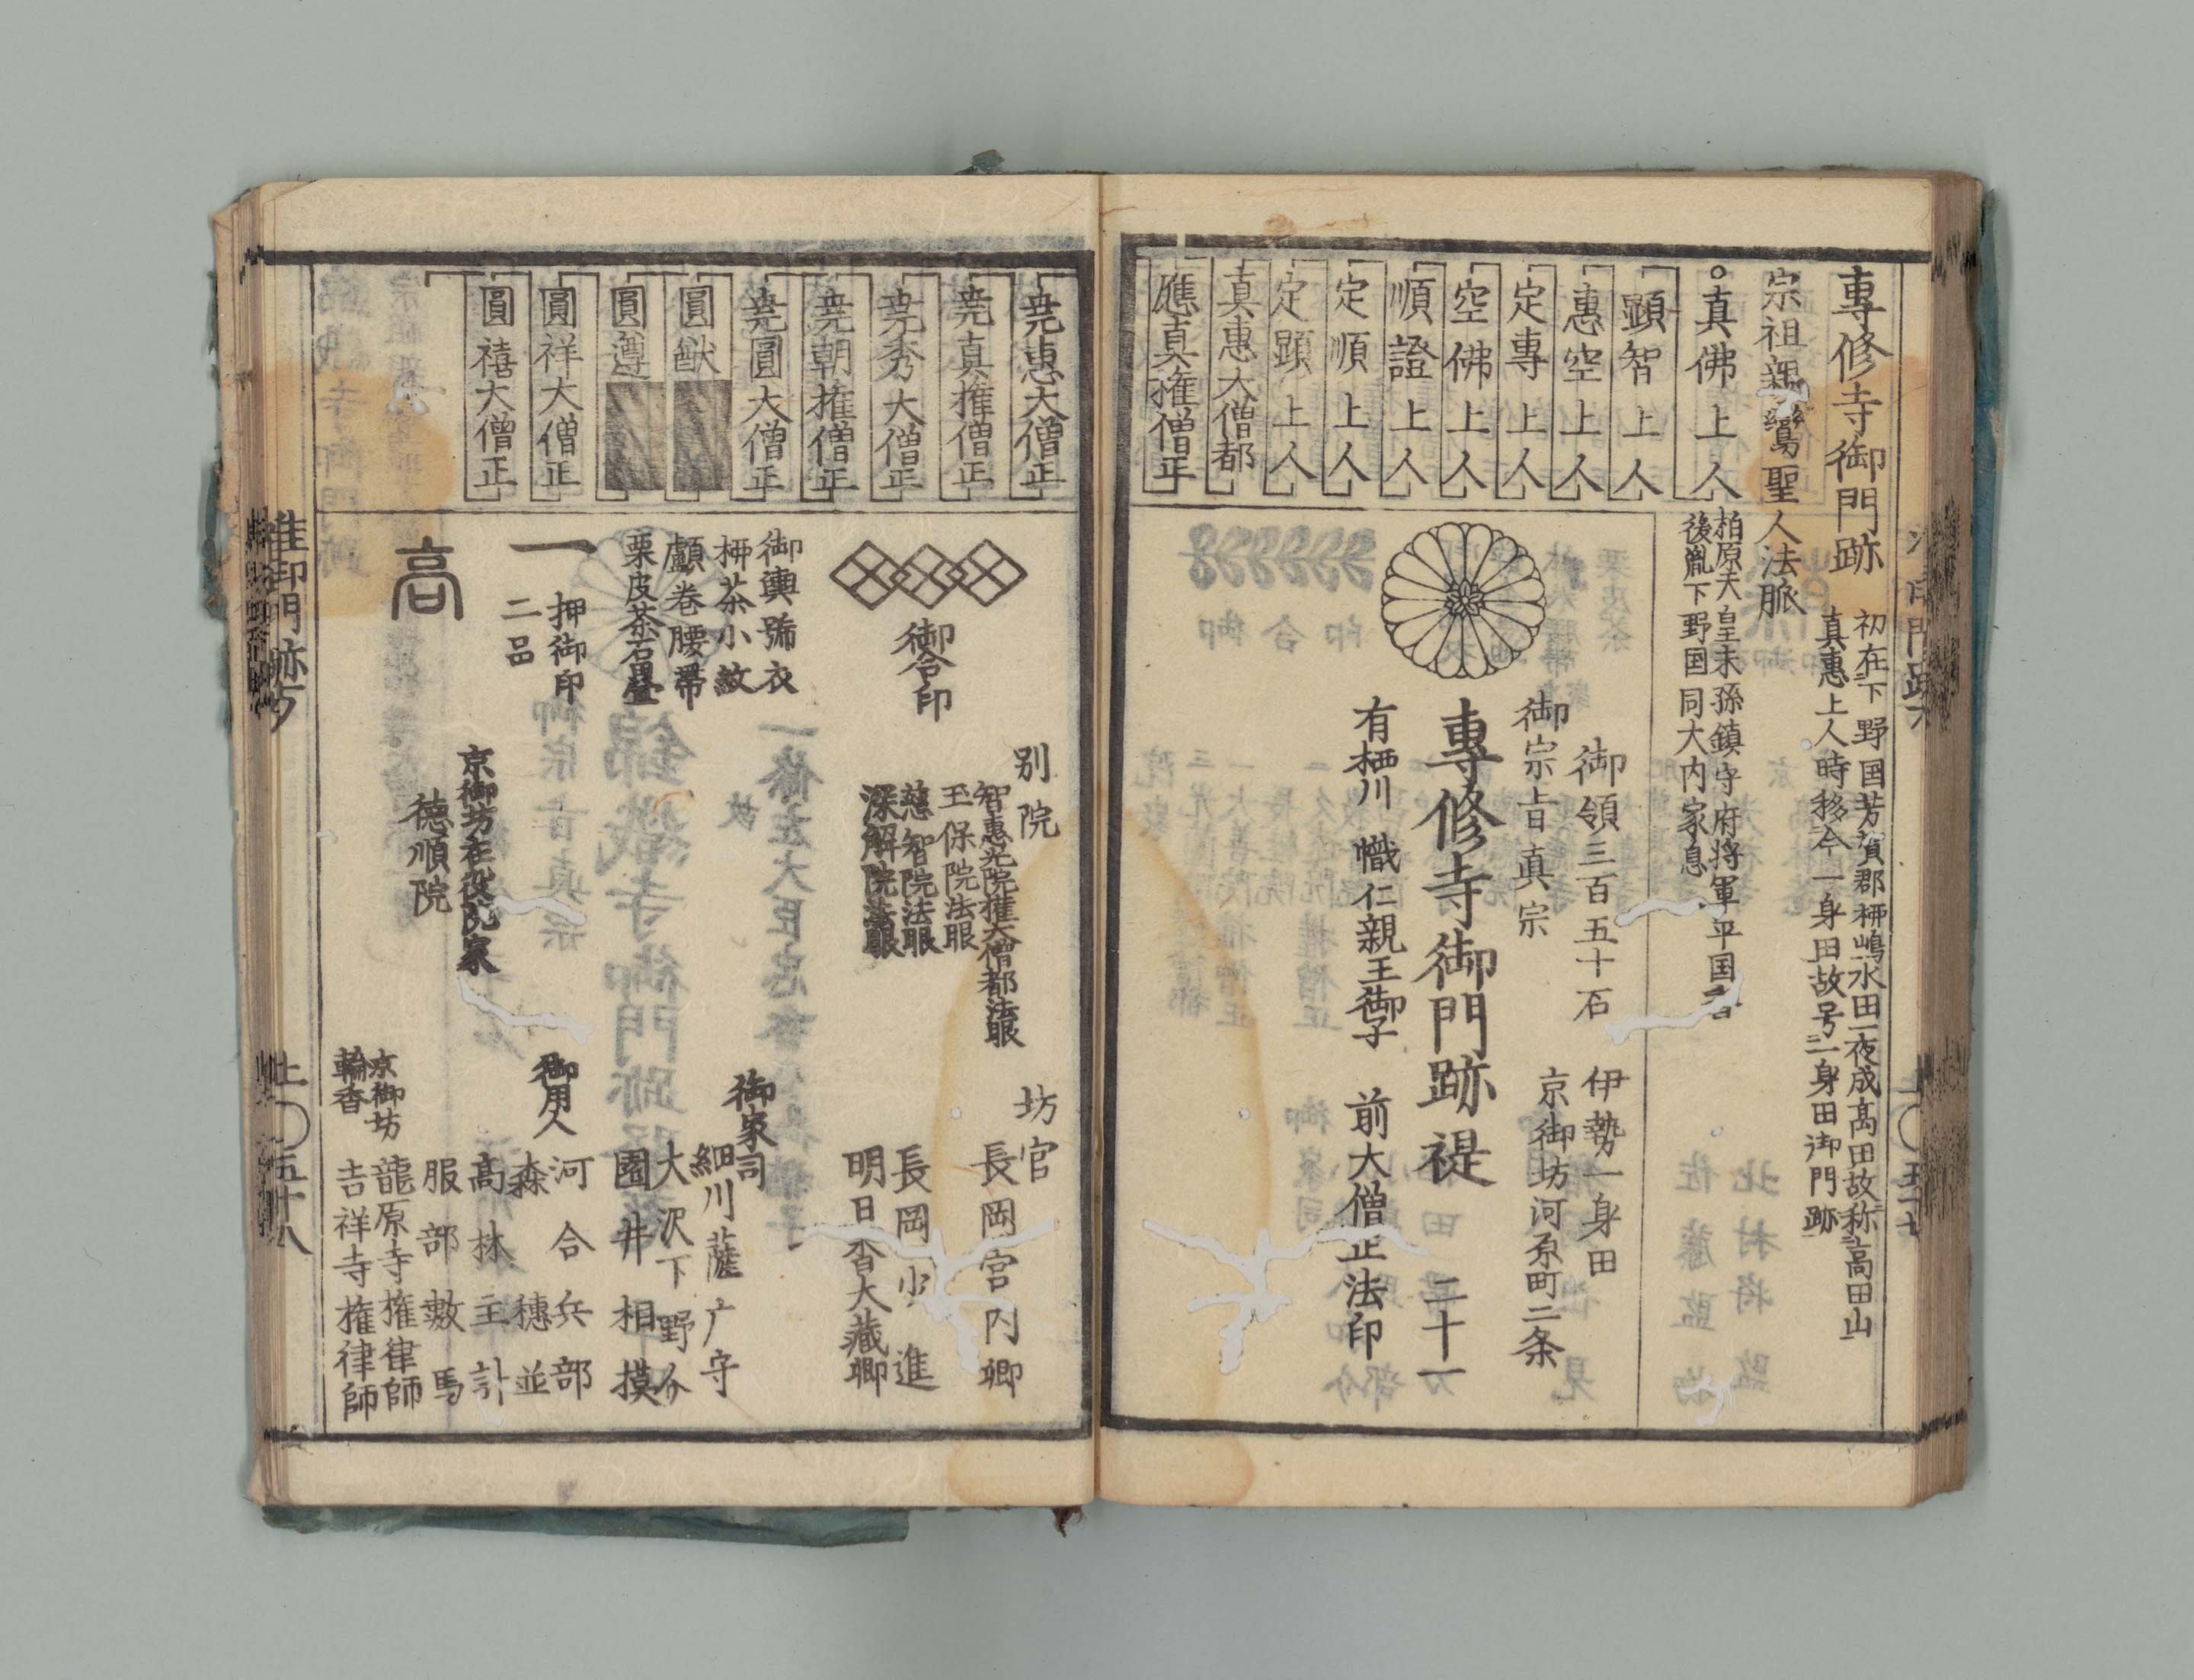 專修寺御門跡
初在下野国芳賀郡柳嶋水田一夜成髙田故称髙田山
真惠上人時移今一身田故号一身田御門跡
宗祖親鸞聖人法脈
真佛上人
柏原天皇末孫鎮守府将軍平国香
後胤下野国司大内家息
顕智上人
惠空上人
定專上人
空佛上人
順證上人
定順上人
定顕上人
真惠大僧都
應真権僧正
御領三百五十石
伊勢一身田
御宗旨真宗
京御坊河原町二条
專修寺御門跡 禔 二十一
有栖川 幟仁親王御子 前大僧正法印
尭惠大僧正
尭真権僧正
尭秀大僧正
尭朝権僧正
尭圓大僧正
圓猷
圓遵
圓祥大僧正
圓禧大僧正
御合印
御輿舁衣
柳茶小紋
顱巻腰帯
栗皮茶石畳
一 押御印
二品
高
别院
智惠光院権大僧都法眼
玉保院法眼
慈智院法眼
深解院法眼
京御坊在役院家
德順院
坊官
長岡宮内卿
長岡少進
明日香大藏卿
御家司
細川薩广守
大沢下野介
園井相摸
御用人
河合兵部
森穗並
髙林主計
服部數馬
京御坊
輪香
龍原寺権律師
吉祥寺権律師
准御門跡方
上〇五十八